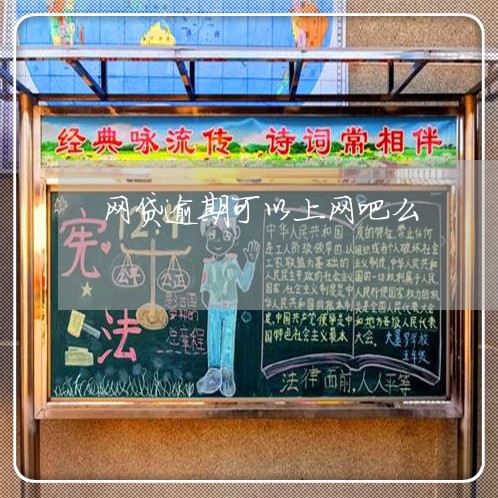 经典咏流传 诗词常相伴
网贷逾期可以上网吧么
宪法
公平 公正
总章程
中华人民共和国
是工人阶级领导的,以
工农联盟为基础的
人民民主专政的社会主义
国家。社会主义制度是中
华人民共和国的根本制
度。中国共产党领导是中
国特色社会主义最本
质的特征。禁止任何
组织或者个人破坏社会
主义制度。中华人民共和
国的一切权利属于人民。
人民行使国家权力的机
关是全国人民代表大会
和地方各级人民代表
大会。
五年级
法律面前,人人平等